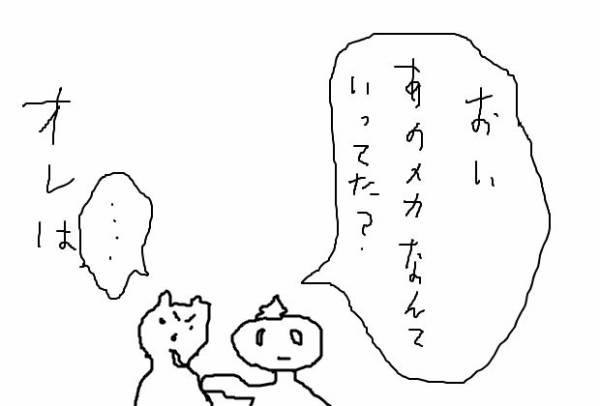 おい
あのメカなんて
いってた?
....
オレは